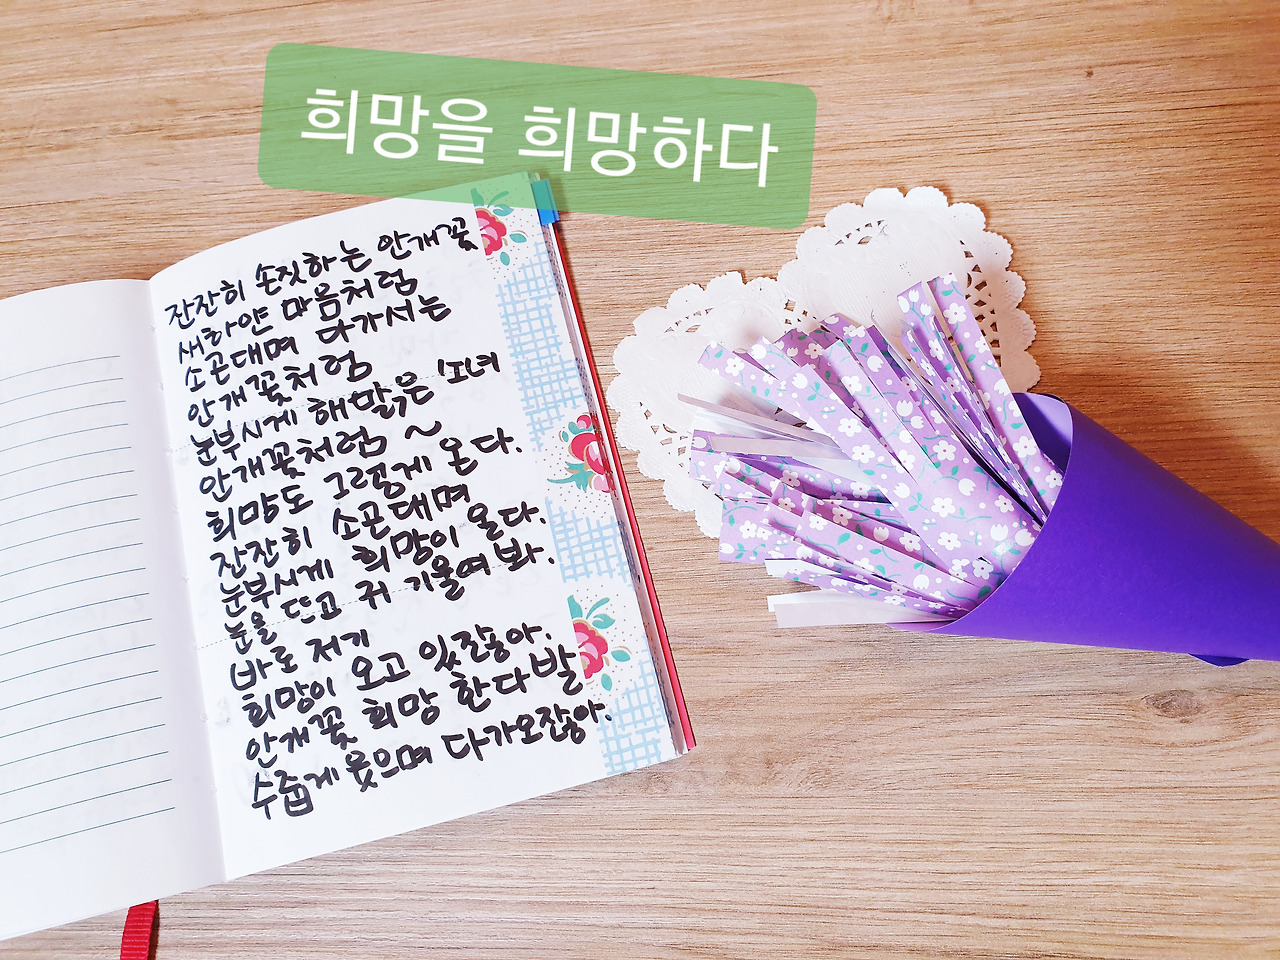 희망을 희망하다
잔잔히 손짓하는 안개꽃
새하얀 마음처럼
소곤대며 다가서는
안개꽃처럼
눈부시게 해맑은 소녀
안개꽃처럼 ~
희망도 그렇게 온다.
잔잔히 소곤대며
눈부시게 희망이 올다.
눈을 뜨고 귀 기울여 봐.
바로 저기
희망이 오고 있잖아.
안개꽃 희망 한 다발
수줍게 웃으며 다가오잖아.